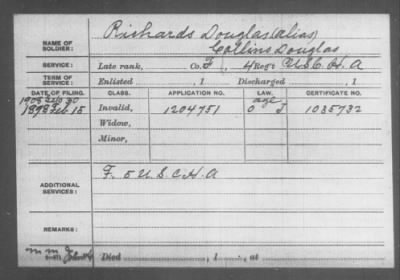 Richards Douglas (alias)
NAME OF SOLDIER: Collins Douglas
SERVICE: Late rank, Co. F, 4 Reg't U.S.C.H.A
TERM OF SERVICE: Enlisted , 1 Discharged , 1
DATE OF FILING. CLASS. APPLICATION NO. LAW. CERTIFICATE NO.
Invalid, 1204751 1035732
Widow,
Minor,
ADDITIONAL SERVICES: F. 5 U.S.C.H.A
REMARKS:
Died , 1 , at